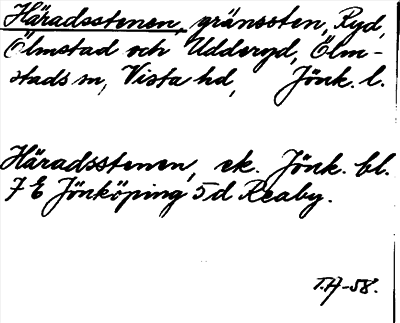 Häradsstenen, gränssten, Ryd,
Ölmstad och Udderyd, Ölm-
stads sn, Vista hd, Jönk. l.
Häradsstenen, ek. Jönk. bl.
7 E Jönköping 5 d Reaby.
T.H-58.